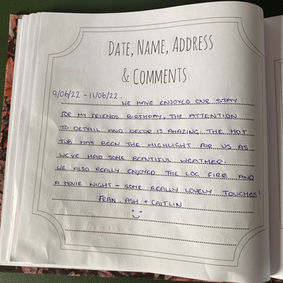 DATE, NAME, ADDRESS
& COMMENTS
9/06/22 - 11/06/22.
WE HAVE ENJOYED OUR STAY
FOR MY FRIENDS BIRTHDAY, THE ATTENTION
TO DETAIL AND DECOR IS AMAZING. THE HOT
TUB HAS BEEN THE HIGHLIGHT FOR US AS
WE'VE HAD SOME BEAUTIFUL WEATHER.
WE ALSO REALLY ENJOYED THE LOG FIRE AND
A MOVIE NIGHT - SOME REALLY LOVELY TOUCHES!
FRAN, ASH + CAITLIN